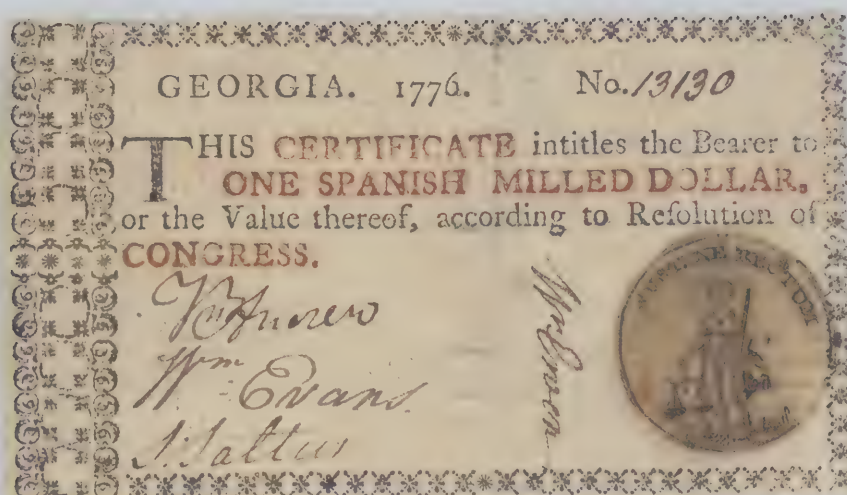 GEORGIA. 1776. No. 13130
THIS CERTIFICATE intitles the Bearer to
ONE SPANISH MILLED DOLLAR,
or the Value thereof, according to Reſolution of
CONGRESS.
Wm Evans
RECTUM